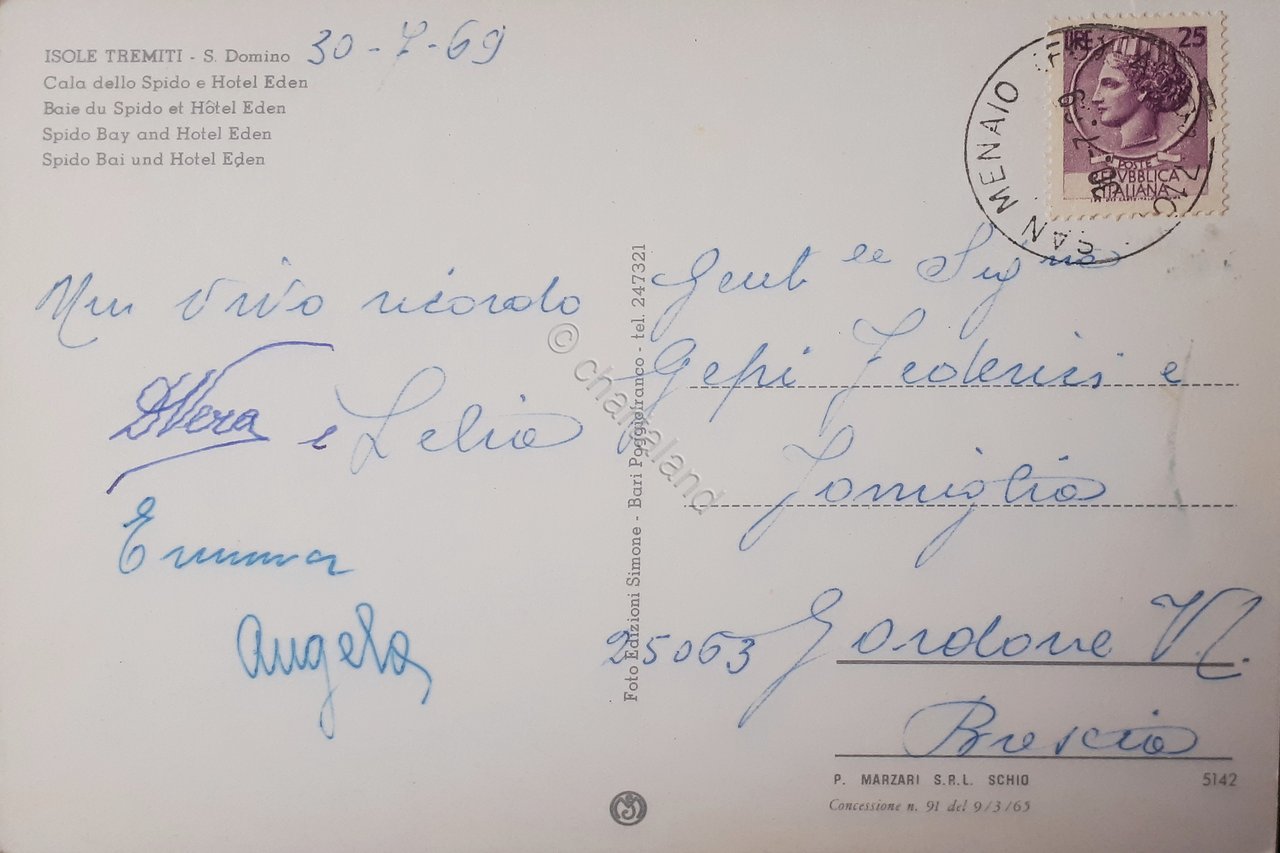 ISOLE TREMITI - S. Domino
30-7-69
Cala dello Spido e Hotel Eden
Baie du Spido et Hôtel Eden
Spido Bay and Hotel Eden
Spido Bai und Hotel Eden
Un vivo ricordo
Vera e Lelia
Emma
Angela
Foto Edizioni Simone - Bari Poggiofranco - tel. 247321
LIRE 25
POSTE
REPVBBLICA
ITALIANA
SAN MENAIO
30.7.69
Gent.le Sig.na
Gepi Federici e
Famiglia
25063 Gardone V.T.
Brescia
P. MARZARI S.R.L. SCHIO
5142
Concessione n. 91 del 9/3/65
© chartaland